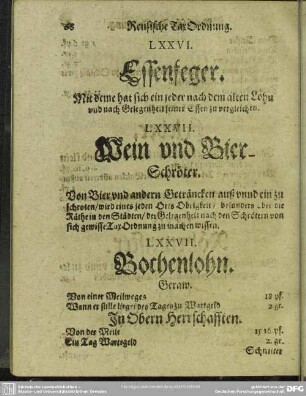 68 Reusische Tax Ordnung.
LXXVI.
Essenfeger.
Mit deme hat sich ein jeder nach dem alten Lohn
vnd nach Gelegenheit seiner Essen zu vergleichen.
LXXVII.
Wein vnd Bier-
Schröter.
Von Bier vnd andern Geträncken auß vnnd ein zu
schroten / wird eines jeden Orts Obrigkeit / besonders aber die
Räthe in den Städten / der Gelegenheit nach den Schrötern von
sich gewisse Tax Ordnung zu machen wissen.
LXXVII.
Bothenlohn.
Geraw.
Von einer Meilweges 18 pf.
Wann er stille liegt des Tages zu Wartgeld 2 gr.
In Obern Herrschafften.
Von der Meile 15 16 pf.
Ein Tag Wartgeld 2. gr.
Schneider